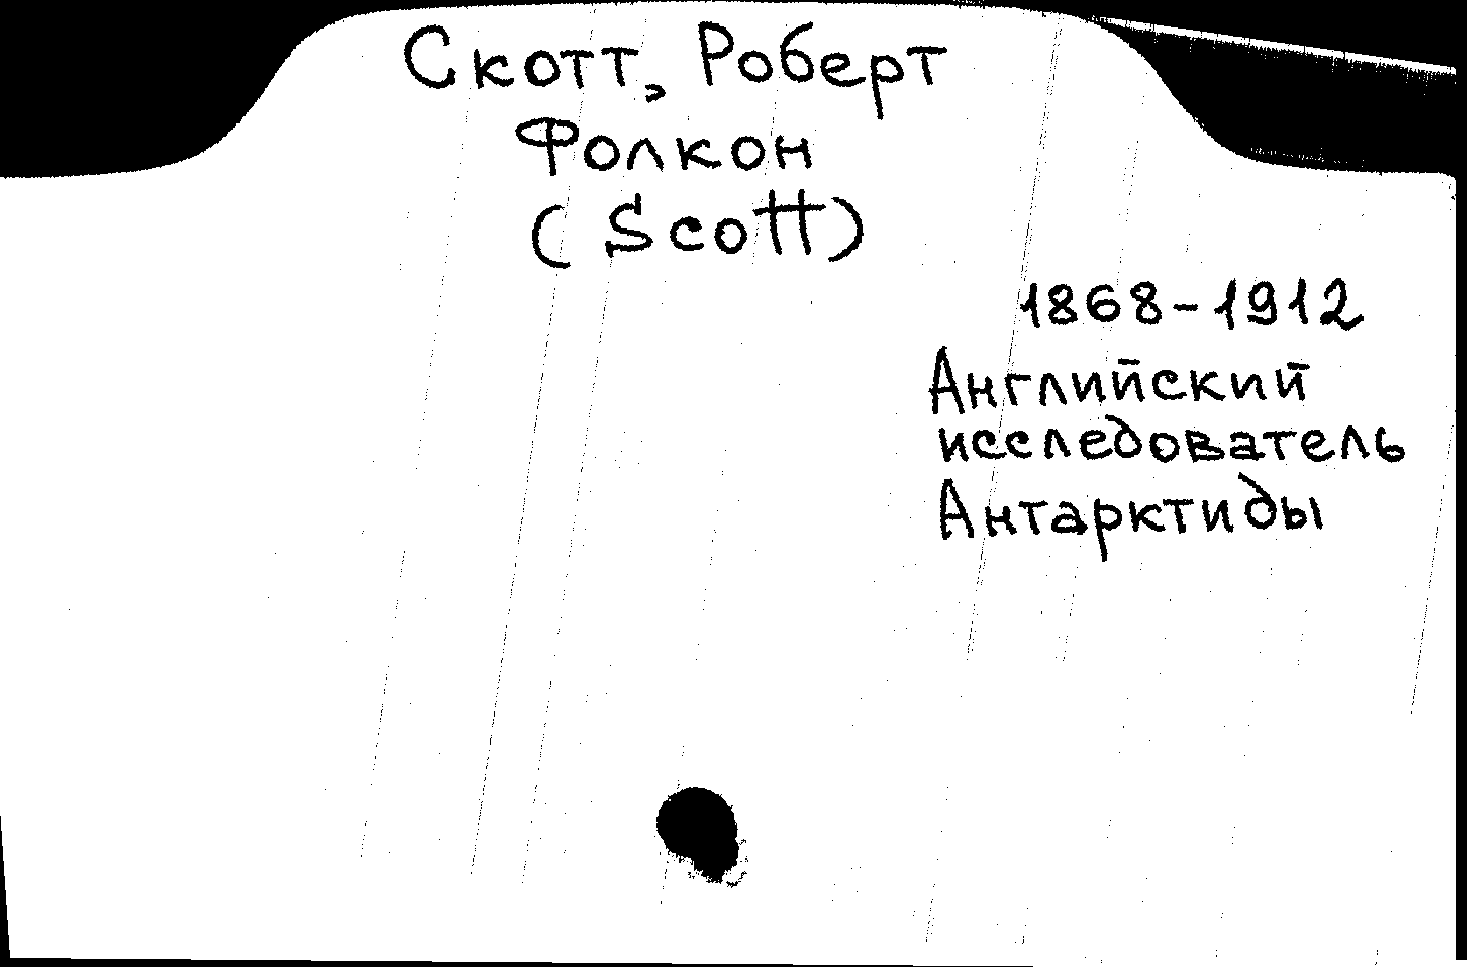 Скотт, Роберт
Фолкон
(Scott)
1868-1912
Английский
исследователь
Антарктиды